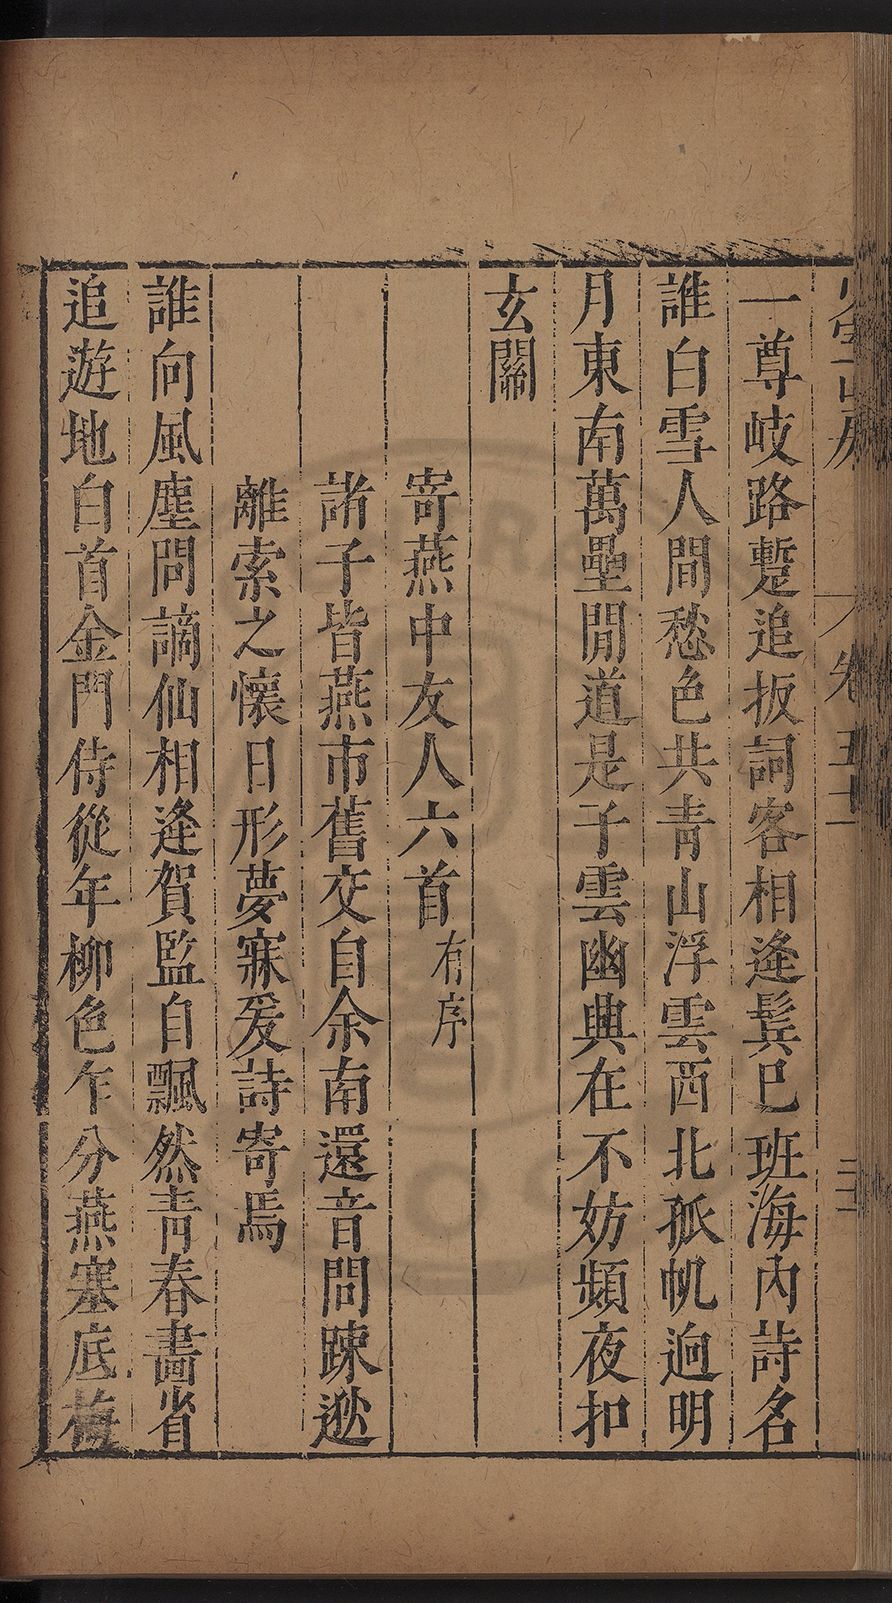 卷五十一
一尊岐路蹔追扳詞客相逢鬂已班海內詩名
誰白雪人間愁色共青山浮雲西北孤帆逈明
月東南萬壘閒道是子雲幽興在不妨頻夜扣
玄關
寄燕中友人六首有序
諸子皆燕市舊交自余南還音問踈逖
離索之懷日形夢寐爰詩寄焉
誰向風塵問謫仙相逢賀監自飄然青春畫省
追遊地白首金門侍從年柳色乍分燕塞底梅